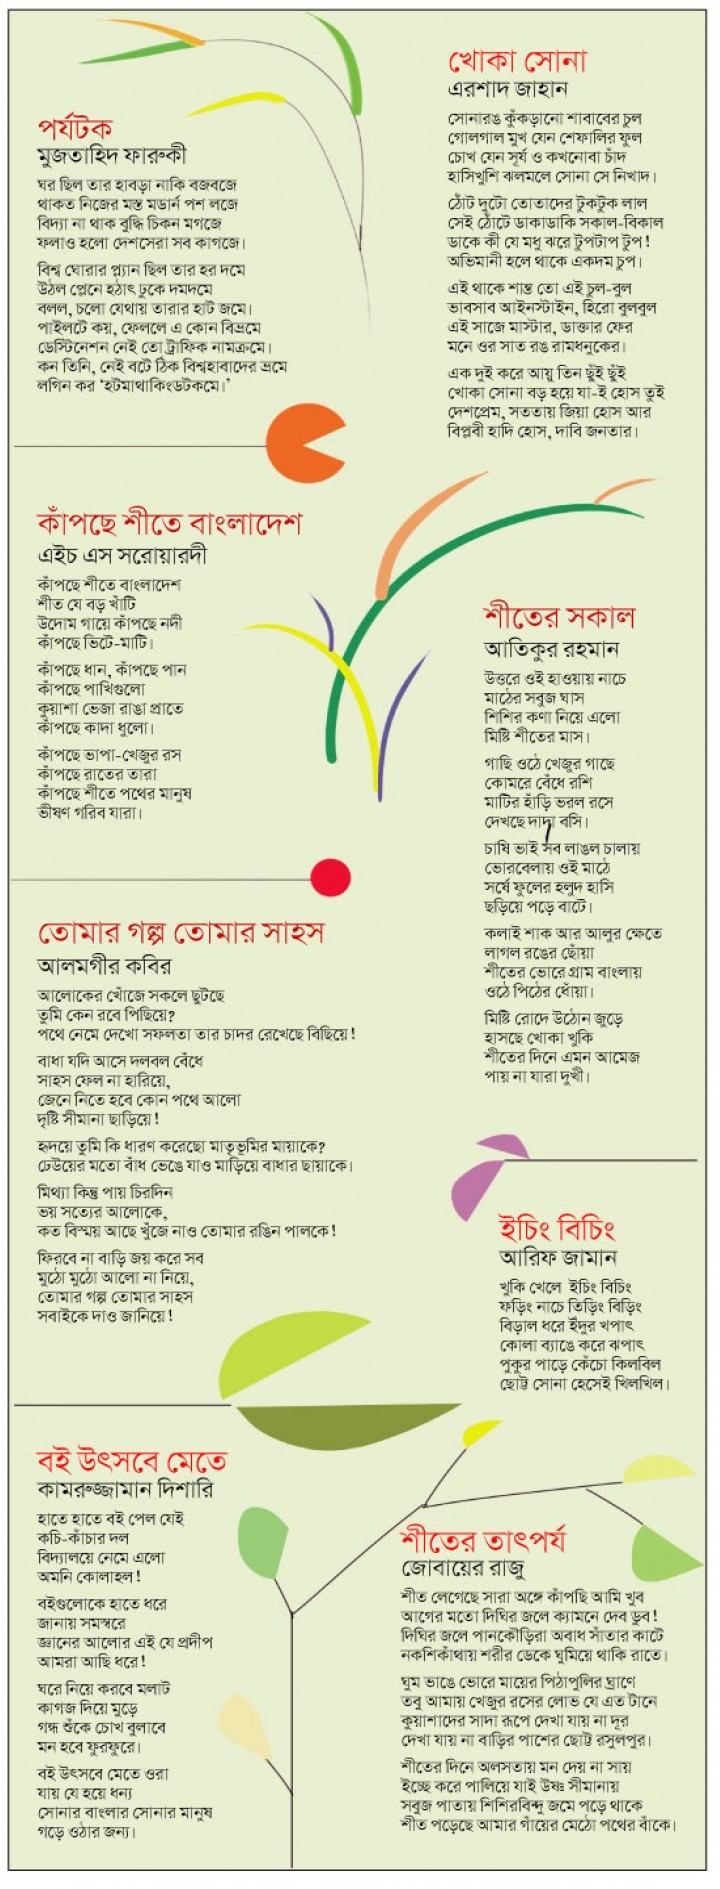 পর্যটক
মুজতাহিদ ফারুকী
ঘর ছিল তার হাবড়া নাকি বজবজে
থাকত নিজের মস্ত মডার্ন পশ লজে
বিদ্যা না থাক বুদ্ধি চিকন মগজে
ফলাও হলো দেশসেরা সব কাগজে।
বিশ্ব ঘোরার প্ল্যান ছিল তার হর দমে
উঠল প্লেনে হঠাৎ ঢুকে দমদমে
বলল, চলো যেথায় তারার হাট জমে।
পাইলটে কয়, ফেললে এ কোন বিভ্রমে
ডেস্টিনেশন নেই তো ট্রাফিক নামক্রমে।
কন তিনি, নেই বটে ঠিক বিশ্বহাবাদের ভ্রমে
লগিন কর ‘হটমাথাকিংডটকমে।’
খোকা সোনা
এরশাদ জাহান
সোনারঙ কুঁকড়ানো শাবাবের চুল
গোলগাল মুখ যেন শেফালির ফুল
চোখ যেন সূর্য ও কখনোবা চাঁদ
হাসিখুশি ঝলমলে সোনা সে নিখাদ।
ঠোঁট দুটো তোতাদের টুকটুক লাল
সেই ঠোঁটে ডাকাডাকি সকাল-বিকাল
ডাকে কী যে মধু ঝরে টুপটাপ টুপ!
অভিমানী হলে থাকে একদম চুপ।
এই থাকে শান্ত তো এই চুল-বুল
ভাবসাব আইনস্টাইন, হিরো বুলবুল
এই সাজে মাস্টার, ডাক্তার ফের
মনে ওর সাত রঙ রামধনুকের।
এক দুই করে আয়ু তিন ছুঁই ছুঁই
খোকা সোনা বড় হয়ে যা-ই হোস তুই
দেশপ্রেম, সততায় জিয়া হোস আর
বিপ্লবী হাদি হোস, দাবি জনতার।
কাঁপছে শীতে বাংলাদেশ
এইচ এস সরোয়ারদী
কাঁপছে শীতে বাংলাদেশ
শীত যে বড় খাঁটি
উদোম গায়ে কাঁপছে নদী
কাঁপছে ভিটে-মাটি।
কাঁপছে ধান, কাঁপছে পান
কাঁপছে পাখিগুলো
কুয়াশা ভেজা রাঙা প্রাতে
কাঁপছে কাদা ধুলো।
কাঁপছে ভাপা-খেজুর রস
কাঁপছে রাতের তারা
কাঁপছে শীতে পথের মানুষ
ভীষণ গরিব যারা।
শীতের সকাল
আতিকুর রহমান
উত্তরে ওই হাওয়ায় নাচে
মাঠের সবুজ ঘাস
শিশির কণা নিয়ে এলো
মিষ্টি শীতের মাস।
গাছি ওঠে খেজুর গাছে
কোমরে বেঁধে রশি
মাটির হাঁড়ি ভরল রসে
দেখছে দাদা বসি।
চাষি ভাই সব লাঙল চালায়
ভোরবেলায় ওই মাঠে
সর্ষে ফুলের হলুদ হাসি
ছড়িয়ে পড়ে বাটে।
কলাই শাক আর আলুর ক্ষেতে
লাগল রঙের ছোঁয়া
শীতের ভোরে গ্রাম বাংলায়
ওঠে পিঠের ধোঁয়া।
মিষ্টি রোদে উঠোন জুড়ে
হাসছে খোকা খুকি
শীতের দিনে এমন আমেজ
পায় না যারা দুখী।
তোমার গল্প তোমার সাহস
আলমগীর কবির
আলোকের খোঁজে সকলে ছুটছে
তুমি কেন রবে পিছিয়ে?
পথে নেমে দেখো সফলতা তার চাদর রেখেছে বিছিয়ে!
বাধা যদি আসে দলবল বেঁধে
সাহস ফেল না হারিয়ে,
জেনে নিতে হবে কোন পথে আলো
দৃষ্টি সীমানা ছাড়িয়ে!
হৃদয়ে তুমি কি ধারণ করেছো মাতৃভূমির মায়াকে?
ঢেউয়ের মতো বাঁধ ভেঙে যাও মাড়িয়ে বাধার ছায়াকে।
মিথ্যা কিন্তু পায় চিরদিন
ভয় সত্যের আলোকে,
কত বিস্ময় আছে খুঁজে নাও তোমার রঙিন পালকে!
ফিরবে না বাড়ি জয় করে সব
মুঠো মুঠো আলো না নিয়ে,
তোমার গল্প তোমার সাহস
সবাইকে দাও জানিয়ে!
ইচিং বিচিং
আরিফ জামান
খুকি খেলে ইচিং বিচিং
ফড়িং নাচে তিড়িং বিড়িং
বিড়াল ধরে ইঁদুর খপাৎ
কোলা ব্যাঙে করে ঝপাৎ
পুকুর পাড়ে কেঁচো কিলবিল
ছোট্ট সোনা হেসেই খিলখিল।
বই উৎসবে মেতে
কামরুজ্জামান দিশারি
হাতে হাতে বই পেল যেই
কচি-কাঁচার দল
বিদ্যালয়ে নেমে এলো
অমনি কোলাহল!
বইগুলোকে হাতে ধরে
জানায় সমস্বরে
জ্ঞানের আলোর এই যে প্রদীপ
আমরা আছি ধরে!
ঘরে নিয়ে করবে মলাট
কাগজ দিয়ে মুড়ে
গন্ধ শুঁকে চোখ বুলাবে
মন হবে ফুরফুরে।
বই উৎসবে মেতে ওরা
যায় যে হয়ে ধন্য
সোনার বাংলার সোনার মানুষ
গড়ে ওঠার জন্য।
শীতের তাৎপর্য
জোবায়ের রাজু
শীত লেগেছে সারা অঙ্গে কাঁপছি আমি খুব
আগের মতো দিঘির জলে ক্যামনে দেব ডুব!
দিঘির জলে পানকৌড়িরা অবাধ সাঁতার কাটে
নকশিকাঁথায় শরীর ডেকে ঘুমিয়ে থাকি রাতে।
ঘুম ভাঙে ভোরে মায়ের পিঠাপুলির ঘ্রাণে
তবু আমায় খেজুর রসের লোভ যে এত টানে
কুয়াশাদের সাদা রূপে দেখা যায় না দূর
দেখা যায় না বাড়ির পাশের ছোট্ট রসুলপুর।
শীতের দিনে অলসতায় মন দেয় না সায়
ইচ্ছে করে পালিয়ে যাই উষ্ণ সীমানায়
সবুজ পাতায় শিশিরবিন্দু জমে পড়ে থাকে
শীত পড়েছে আমার গাঁয়ের মেঠো পথের বাঁকে।